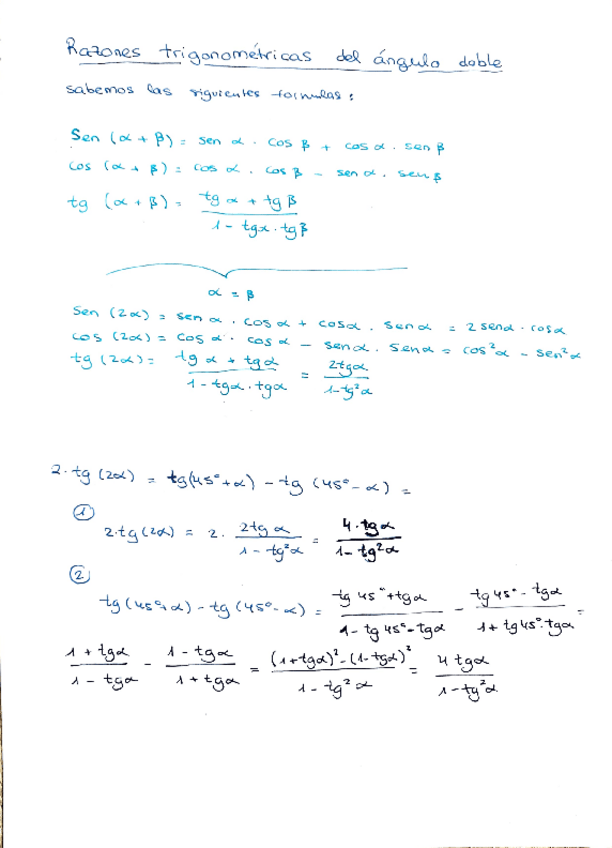 Razones trigonométricas del ángulo doble
sabemos las siguientes formulas:
Sen (α + β) = sen α · cos β + cos α · sen β
cos (α + β) = cos α · cos β - sen α · sen β
tg (α + β) = (tg α + tg β) / (1 - tgα · tg β)
α = β
Sen (2α) = sen α · cos α + cos α · sen α = 2 sen α · cos α
cos (2α) = cos α · cos α - sen α · sen α = cos²α - sen²α
tg (2α) = (tg α + tg α) / (1 - tgα · tgα) = 2tgα / (1 - tg²α)
2 · tg (2α) = tg (45° + α) - tg (45° - α) =
①
2 · tg (2α) = 2 · 2tg α / (1 - tg²α) = 4 · tgα / (1 - tg²α)
②
tg (45° + α) - tg (45° - α) = (tg 45° + tgα) / (1 - tg 45° - tgα) - (tg 45° - tgα) / (1 + tg 45° · tgα) =
(1 + tgα) / (1 - tgα) - (1 - tgα) / (1 + tgα) = ((1 + tgα)² - (1 - tgα)²) / (1 - tg²α) = 4 tgα / (1 - tg²α)